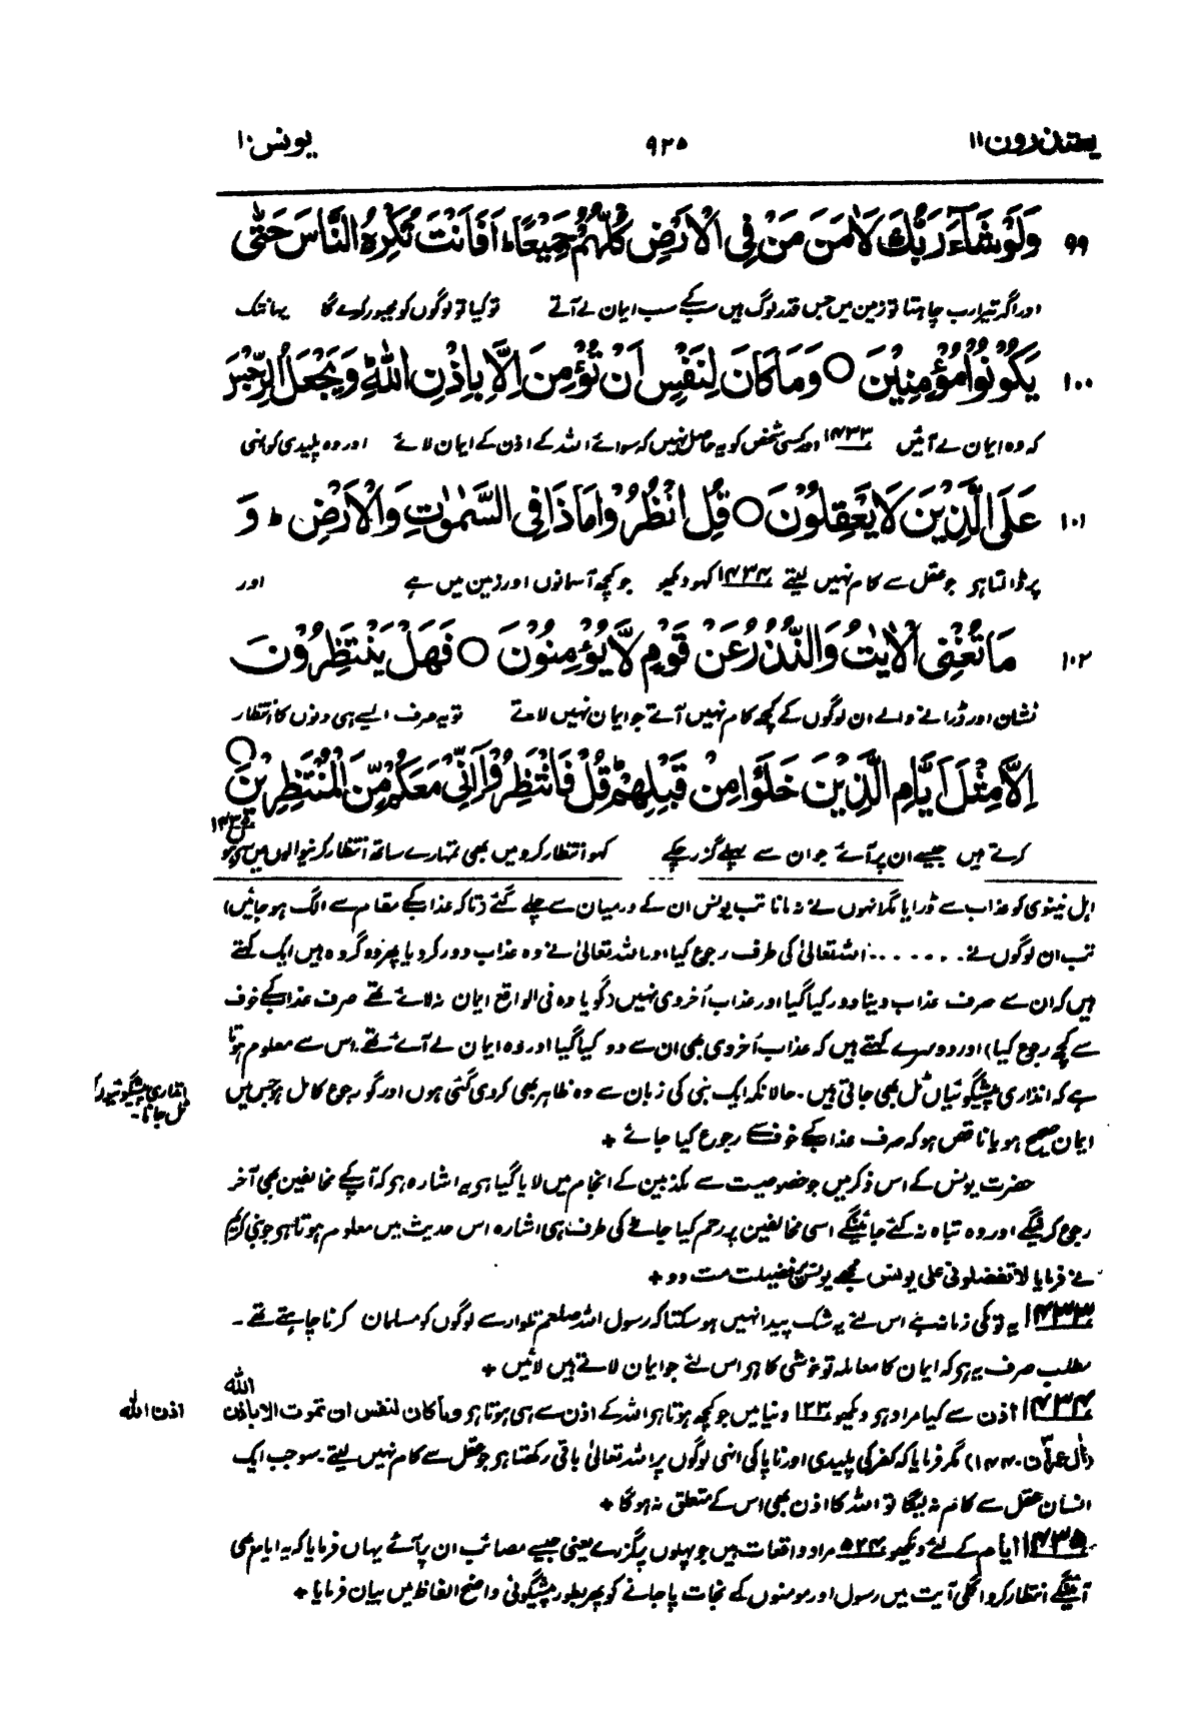 یعتذرون ۱۱ ۹۲۵ یونس ۱۰
۹۹ وَلَوْ شَآءَ رَبُّكَ لَاٰمَنَ مَنْ فِی الْاَرْضِ كُلُّهُمْ جَمِيْعًا ؕ اَفَاَنْتَ تُكْرِهُ النَّاسَ حَتّٰى
اور اگر تیرا رب چاہتا تو زمین میں جس قدر لوگ ہیں سب کے سب ایمان لے آتے تو کیا تو لوگوں کو مجبور کرے گا یہانتک
۱۰۰ يَكُوْنُوْا مُؤْمِنِيْنَ ○ وَمَا كَانَ لِنَفْسٍ اَنْ تُؤْمِنَ اِلَّا بِاِذْنِ اللّٰهِ ؕ وَيَجْعَلُ الرِّجْسَ
کہ وہ ایمان لے آئیں ۱۴۳۳ اور کسی شخص کو یہ حاصل نہیں کہ سوائے اللہ کے اذن کے ایمان لائے اور وہ پلیدی کو انہی
۱۰۱ عَلَى الَّذِيْنَ لَا يَعْقِلُوْنَ ○ قُلِ انْظُرُوْا مَاذَا فِی السَّمٰوٰتِ وَالْاَرْضِ ؕ وَ
پر ڈالتا ہو جو عقل سے کام نہیں لیتے ۱۴۳۴ کہو دیکھو جو کچھ آسمانوں اور زمین میں ہے اور
۱۰۲ مَا تُغْنِی الْاٰيٰتُ وَالنُّذُرُ عَنْ قَوْمٍ لَّا يُؤْمِنُوْنَ ○ فَهَلْ يَنْتَظِرُوْنَ
نشان اور ڈرانے والے ان لوگوں کے کچھ کام نہیں آتے جو ایمان نہیں لاتے تو یہ صرف ایسے ہی دنوں کا انتظار
اِلَّا مِثْلَ اَيَّامِ الَّذِيْنَ خَلَوْا مِنْ قَبْلِهِمْ ؕ قُلْ فَانْتَظِرُوْٓا اِنِّیْ مَعَكُمْ مِّنَ الْمُنْتَظِرِيْنَ ○
کرتے ہیں جیسے ان پر آئے جو ان سے پہلے گزر چکے کہو انتظار کرو میں بھی تمہارے ساتھ انتظار کرنیوالوں میں سے ہوں
اہل نینوی کو عذاب سے ڈرایا مگر انہوں نے نہ مانا تب یونس ان کے درمیان سے چلے گئے (تاکہ عذاب کے مقام سے الگ ہو جائیں)
تب ان لوگوں نے ....... اللہ تعالیٰ کی طرف رجوع کیا اور اللہ تعالیٰ نے وہ عذاب دور کر دیا پھر دو گروہ ہیں ایک کہتے
ہیں کہ ان سے صرف عذاب دینا دور کیا گیا اور عذاب اُخروی نہیں (گویا وہ فی الواقع ایمان نہ لائے تھے صرف عذاب کے خوف
سے کچھ رجوع کیا) اور دوسرے کہتے ہیں کہ عذاب اُخروی بھی ان سے دور کیا گیا اور وہ ایمان لے آئے تھے۔ اس سے معلوم ہوتا
ہے کہ انذاری پیشگوئیاں ٹل بھی جاتی ہیں۔ حالانکہ ایک نبی کی زبان سے وہ ظاہر بھی کر دی گئی ہوں اور گو رجوع کامل ہو جس میں
انذاری پیشگوئیوں کا
ٹل جانا۔
ایمان صحیح ہو یا ناقص ہو کہ صرف عذاب کے خوف سے رجوع کیا جائے +
حضرت یونس کے اس ذکر میں جو خصوصیت سے مکذبین کے انجام میں لایا گیا ہو یہ اشارہ ہو کہ آپ کے مخالفین بھی آخر
رجوع کرینگے اور وہ تباہ نہ کئے جائینگے اسی مخالفین پر رحم کیا جانے کی طرف ہی اشارہ اس حدیث میں معلوم ہوتا ہو جو نبی کریم
نے فرمایا لا تفضلونی علی یونس مجھے یونس پر فضیلت مت دو +
۱۴۳۳ یہ تو مکی زمانہ ہے اس لئے یہ شک پیدا نہیں ہو سکتا کہ رسول اللہ صلعم تلوار سے لوگوں کو مسلمان کرنا چاہتے تھے۔
مطلب صرف یہ ہو کہ ایمان کا معاملہ تو خوشی کا ہو اس لئے جو ایمان لاتے ہیں لائیں +
۱۴۳۴ اذن سے کیا مراد ہو دیکھو ۱۲۳ دنیا میں جو کچھ ہوتا ہو اللہ کے اذن سے ہی ہوتا ہو وما کان لنفس ان تموت الا باذن اللہ
اذن اللہ
(اٰل عمرٰن۔۱۴۴) مگر فرمایا کہ کفر کی پلیدی اور ناپاکی انہی لوگوں پر اللہ تعالیٰ باقی رکھتا ہو جو عقل سے کام نہیں لیتے۔ سو جب ایک
انسان عقل سے کام نہ لیگا تو اللہ کا اذن بھی اس کے متعلق نہ ہوگا +
۱۴۳۵ ایام کے لئے دیکھو ۵۲۴ مراد واقعات ہیں جو پہلوں پر گزرے یعنی جیسے مصائب ان پر آئے یہاں فرمایا کہ یہ ایام بھی
آئینگے انتظار کرو اگلی آیت میں رسول اور مومنوں کے نجات پا جانے کو پھر بطور پیشگوئی واضح الفاظ میں بیان فرمایا +